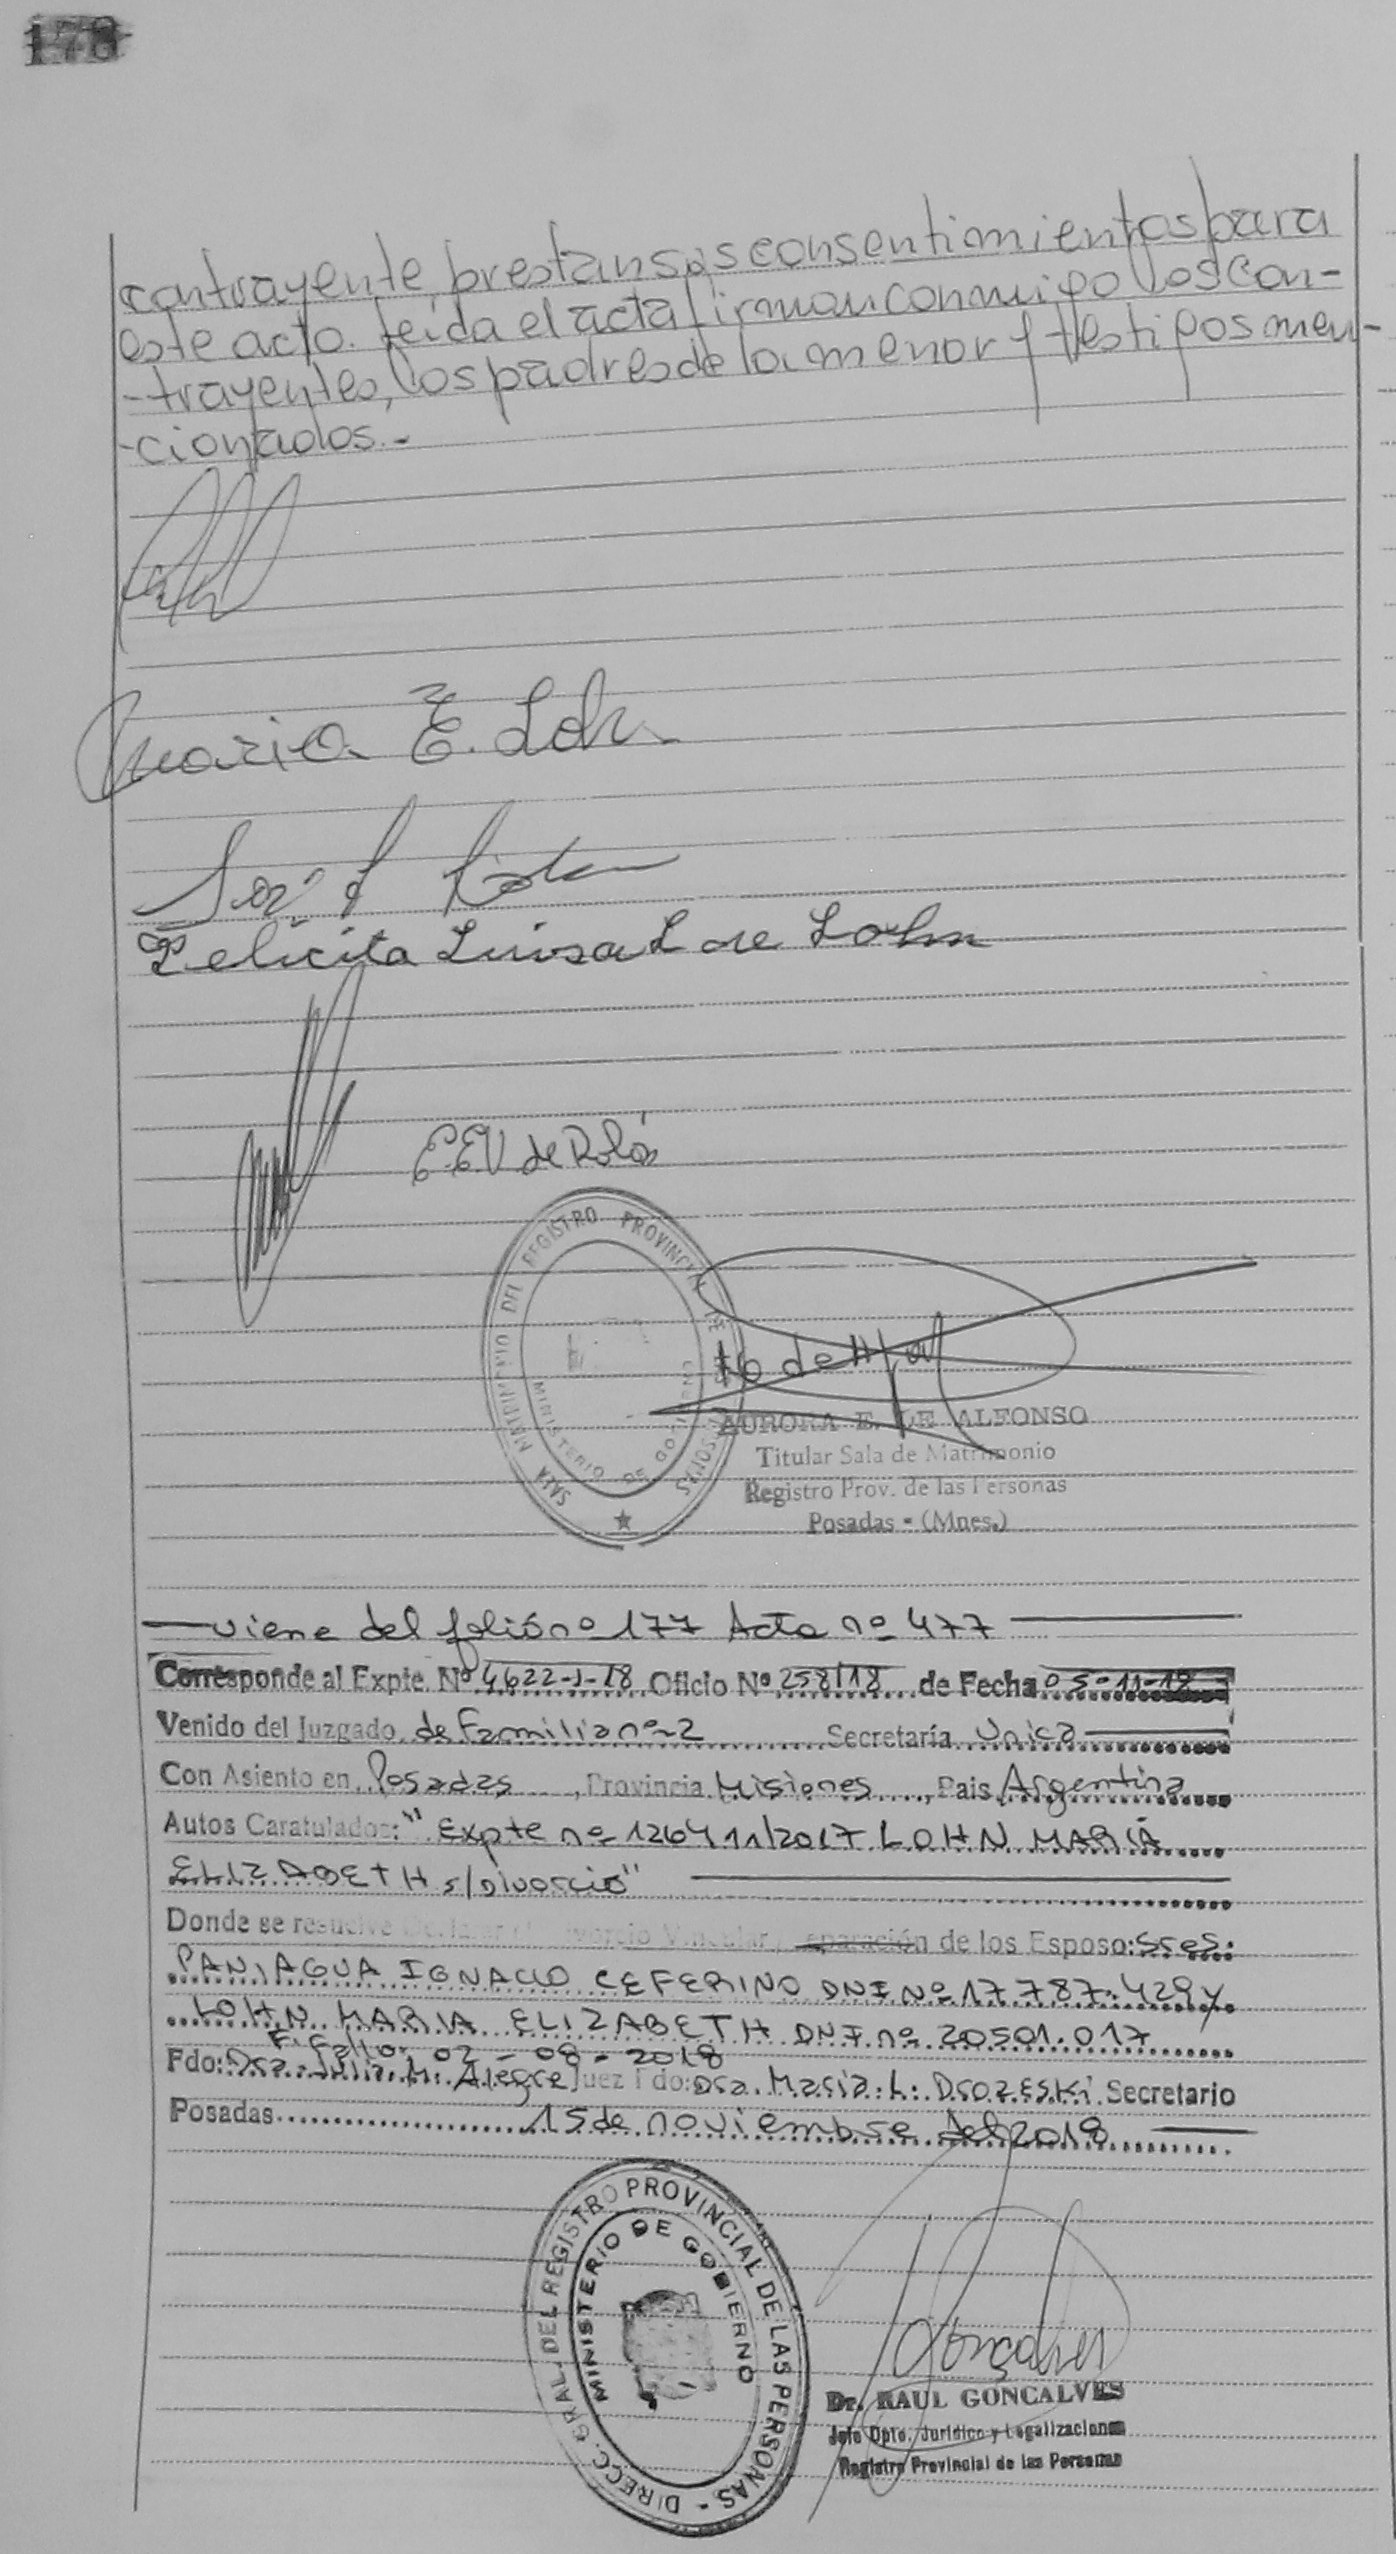 178
contrayente, prestan sus consentimientos para
este acto. Leida el acta firman conmigo los con-
-trayentes, los padres de la menor y testigos men-
-cionados.-
Maria E. Lohn
Felicita Luisa L de Lohn
E.E.V de Rolón
SALA MATRIMONIO DEL REGISTRO PROVINCIAL DE LAS PERSONAS
MINISTERIO DE GOBIERNO
AURORA E. DE ALFONSO
Titular Sala de Matrimonio
Registro Prov. de las Personas
Posadas - (Mnes.)
viene del folio nº 177 Acta nº 477
Corresponde al Expte. Nº 4622-J-18 Oficio Nº 258/18 de Fecha 05-11-18
Venido del Juzgado de Familia nº 2 Secretaría Unica
Con Asiento en Posadas, Provincia Misiones, Pais Argentina
Autos Caratulados: "Expte nº 126411/2017 LOHN MARIA
ELIZABETH s/Divorcio"
Donde se resuelve Declarar el Divorcio Vincular, eparación de los Esposo: Sres:
PANIAGUA IGNACIO CEFERINO DNI Nº 17.787.429 y
LOHN MARIA ELIZABETH DNI nº 20501.017
F. Fallo: 02-08-2018
Fdo: Dra. Julia M. Alegre Juez Fdo: Dra. Maria L. Drozeski Secretario
Posadas 15 de noviembre del 2018
DIRECC. GRAL. DEL REGISTRO PROVINCIAL DE LAS PERSONAS -
MINISTERIO DE GOBIERNO
Goncalves
Dr. RAUL GONCALVES
Jefe Dpto. Jurídico y Legalizaciones
Registro Provincial de las Personas